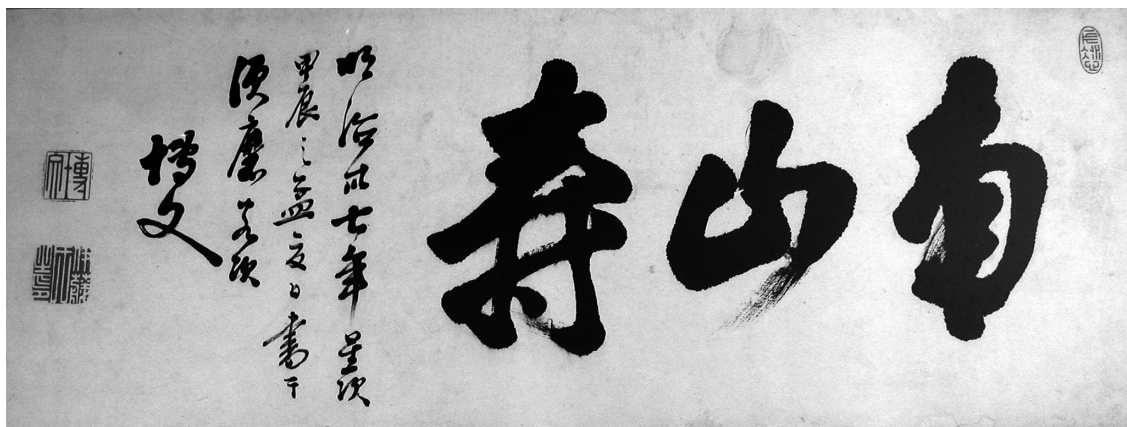 南山寿
明治卅七年星次
甲辰之孟夏日書于
須磨客次
博文